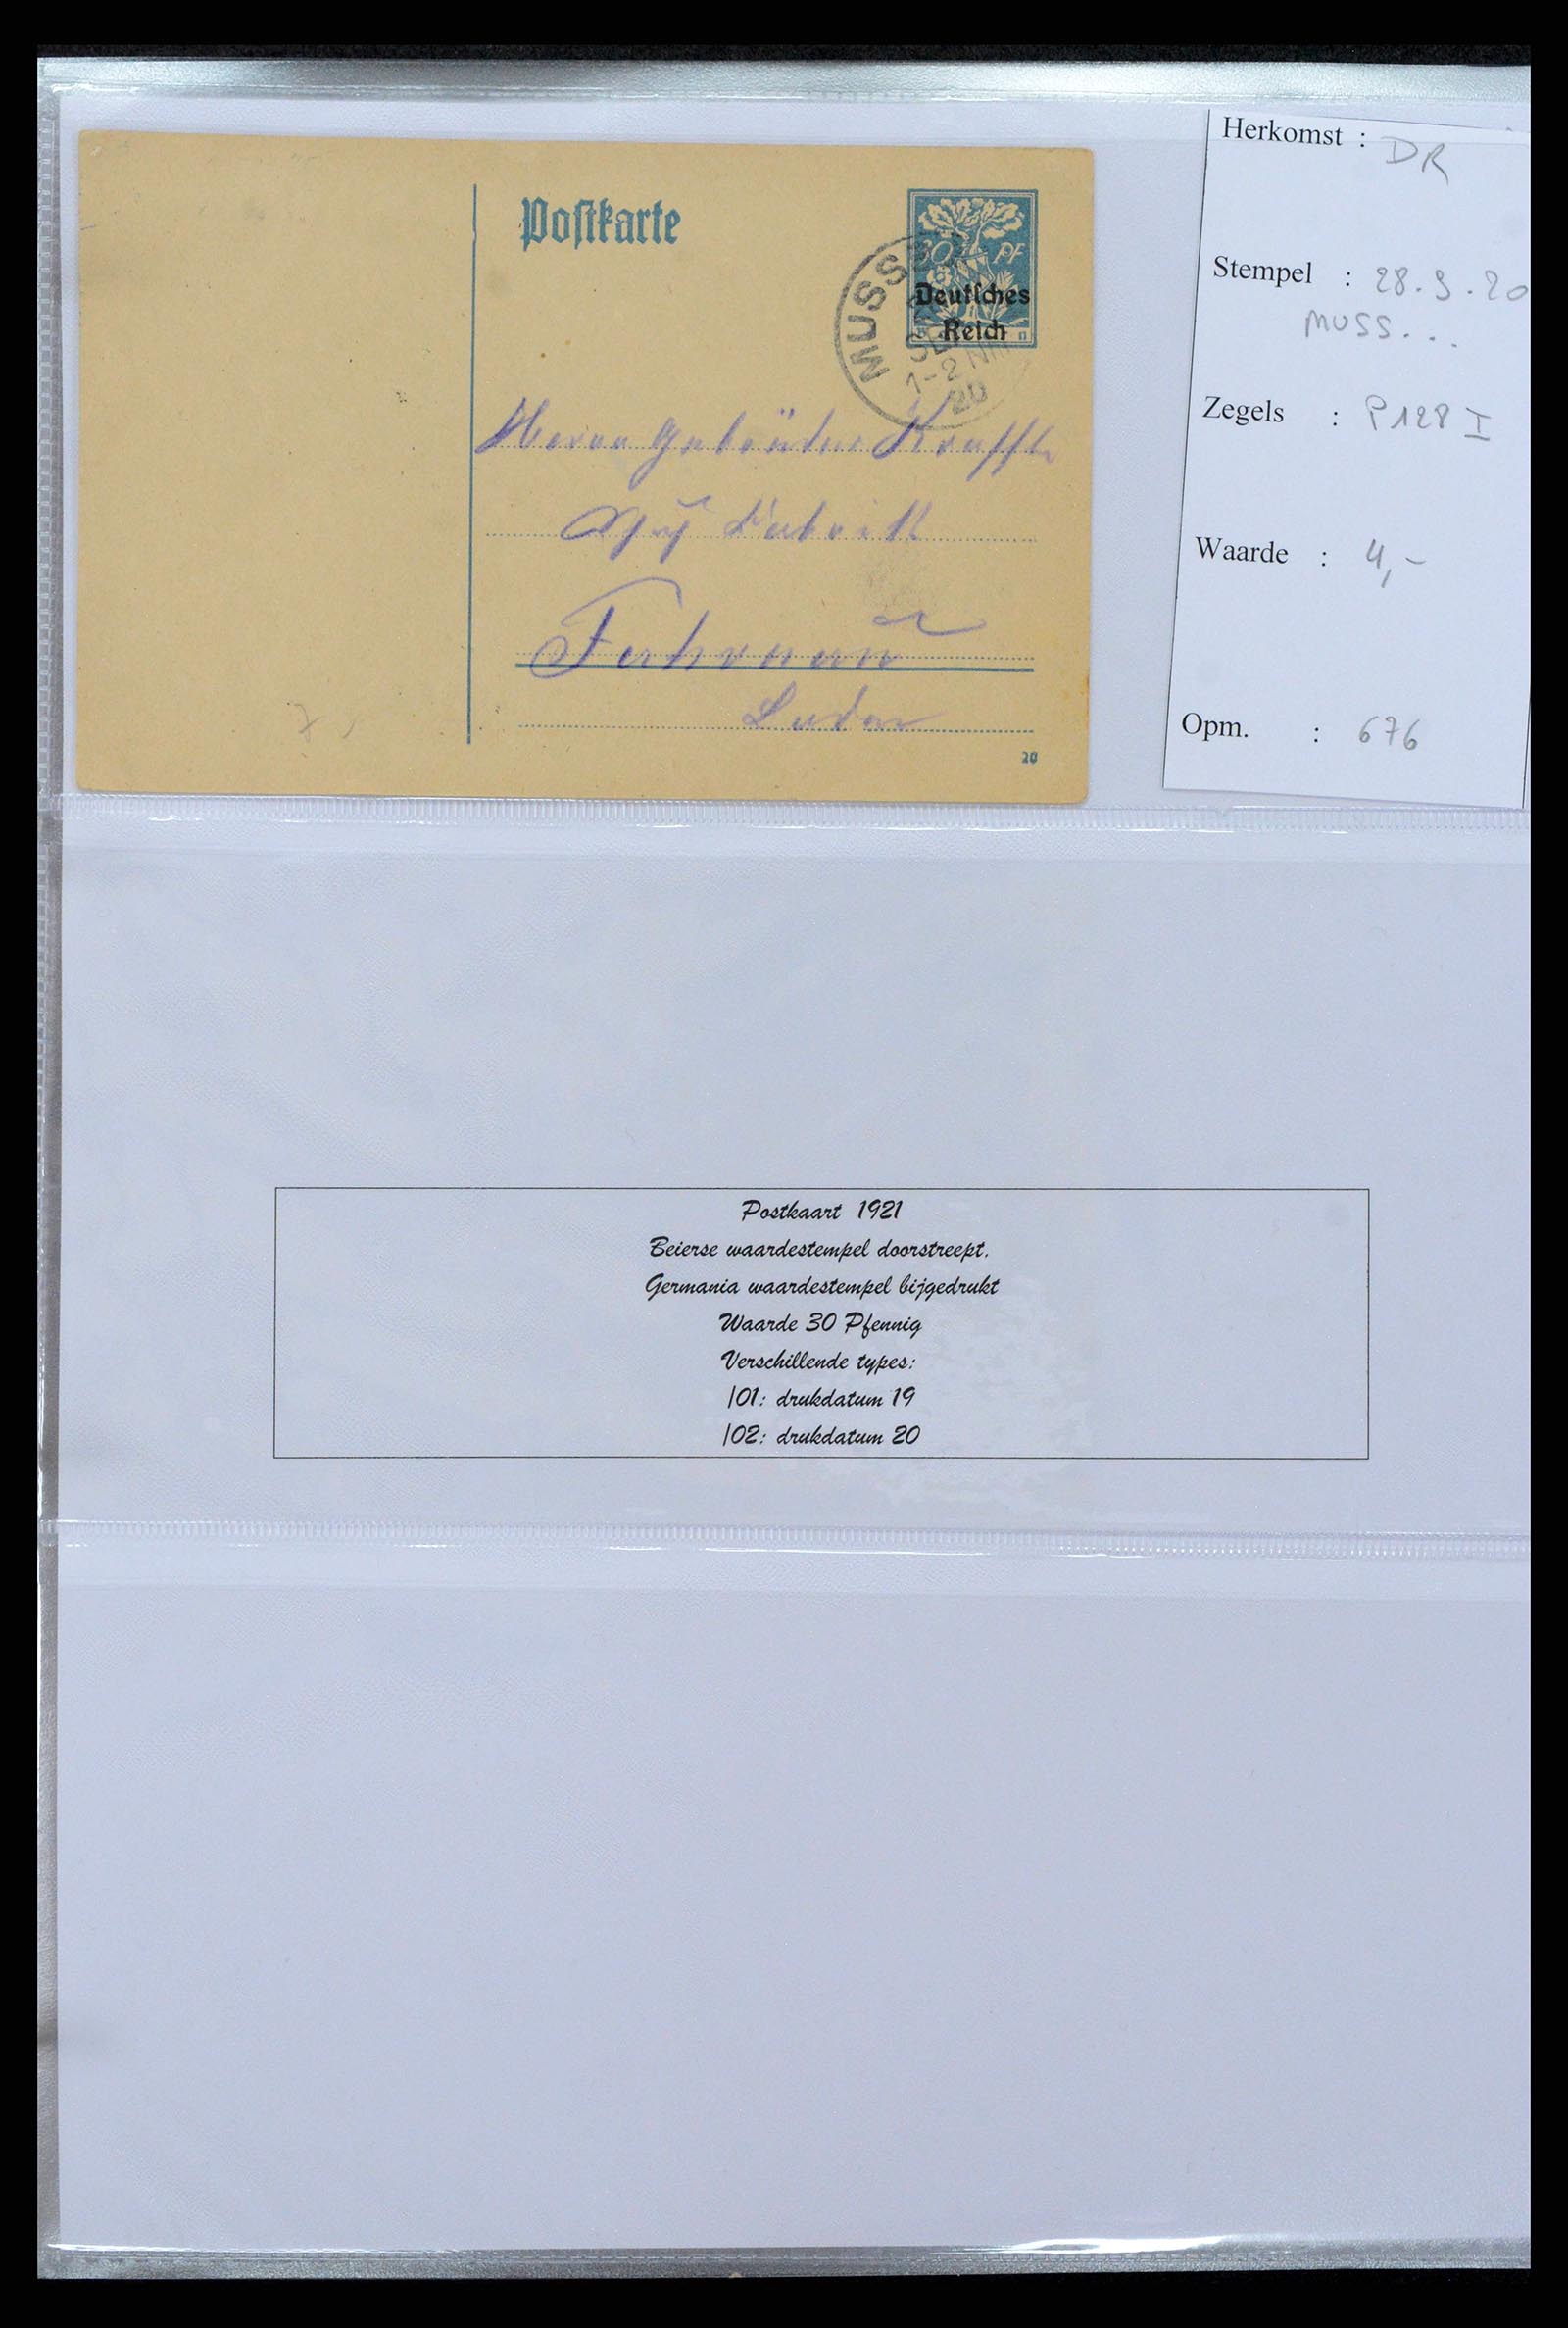 Postkarte
30 PF
Deutsches
Reich
MUSS
1-2 N
20
Herrn Gebrüder Krafft
Fabrik
Fahrnau
Baden
20
Herkomst : DR
Stempel : 28.9.20
MUSS...
Zegels : P128 I
Waarde : 4,-
Opm. : 676
Postkaart 1921
Beierse waardestempel doorstreept.
Germania waardestempel bijgedrukt
Waarde 30 Pfennig
Verschillende types:
/01: drukdatum 19
/02: drukdatum 20